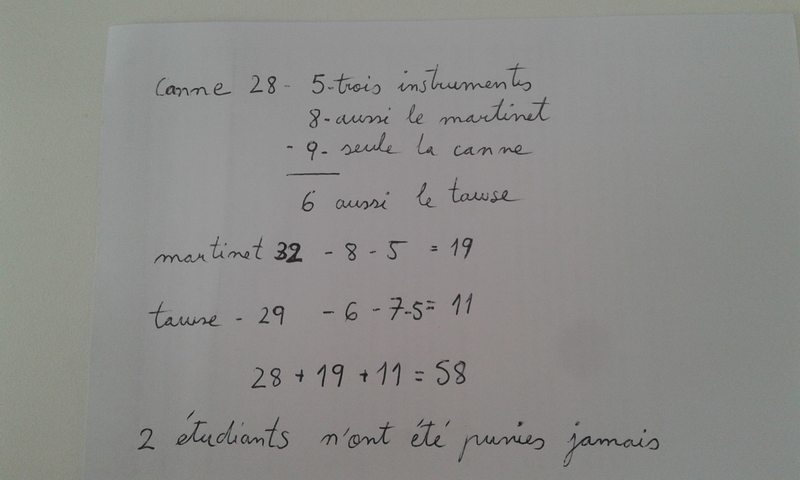 Canne 28 - 5-trois instruments
8-aussi le martinet
- 9- seule la canne
6 aussi le tawse
martinet 32 - 8 - 5 = 19
tawse - 29 - 6 - 7-5= 11
28 + 19 + 11 = 58
2 étudiants n'ont été punies jamais